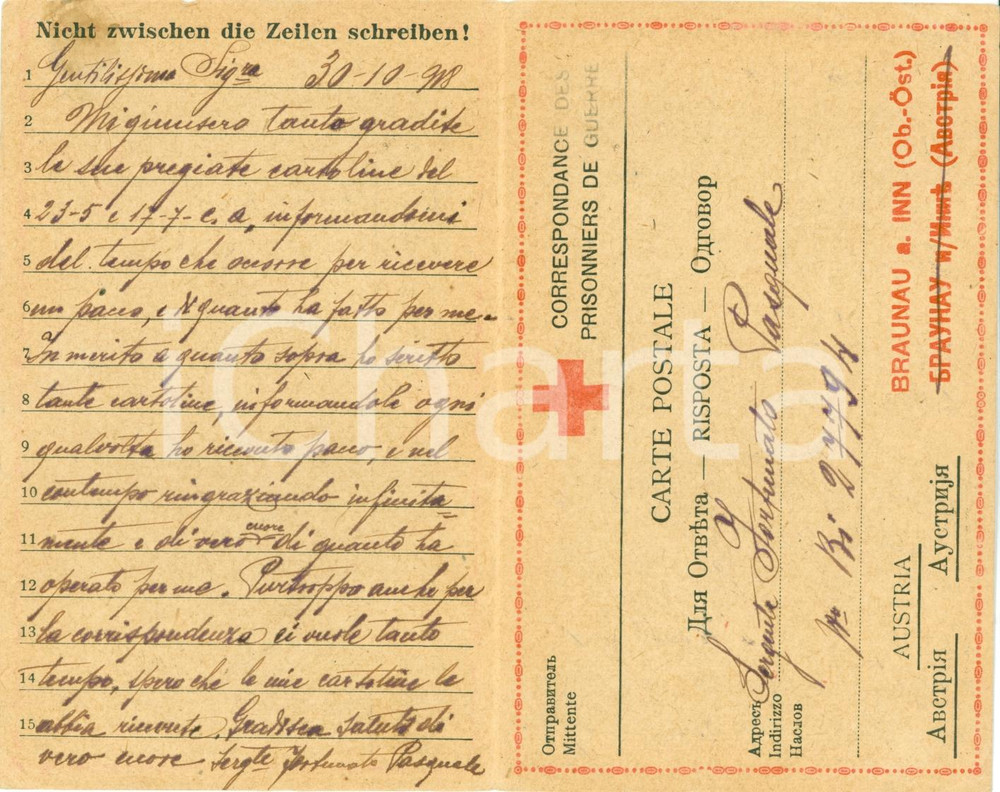 Nicht zwischen die Zeilen schreiben!
1 Gentilissima Sig.ra 30-10-918
2 Mi giunsero tanto gradite
3 le sue pregiate cartoline del
4 23-5 e 17-7- c. a, informandomi
5 del tempo che occorre per ricevere
6 un pacco, e di quanto ha fatto per me.
7 In merito a quanto sopra ho scritto
8 tante cartoline, informandola ogni
9 qualvolta ho ricevuto pacco, e nel
10 contempo ringraziando infinita-
11 mente e di vero cuore di quanto ha
12 operato per me. Purtroppo anche per
13 la corrispondenza ci vuole tanto
14 tempo, spero che le mie cartoline le
15 abbia ricevute. Gradisca saluti di
vero cuore Sergte Fortunato Pasquale
CORRESPONDANCE DES
PRISONNIERS DE GUERRE
CARTE POSTALE
Для Отвѣта — RISPOSTA — Одговор
Отправитель
Mittente
Адресъ
Indirizzo
Наслов
Sergente Fortunato Pasquale
BRAUNAU a. INN (Ob.-Öst.)
БРАУНАУ н/Иннѣ (Австрія)
AUSTRIA
Австрія Аустрија
iCharta